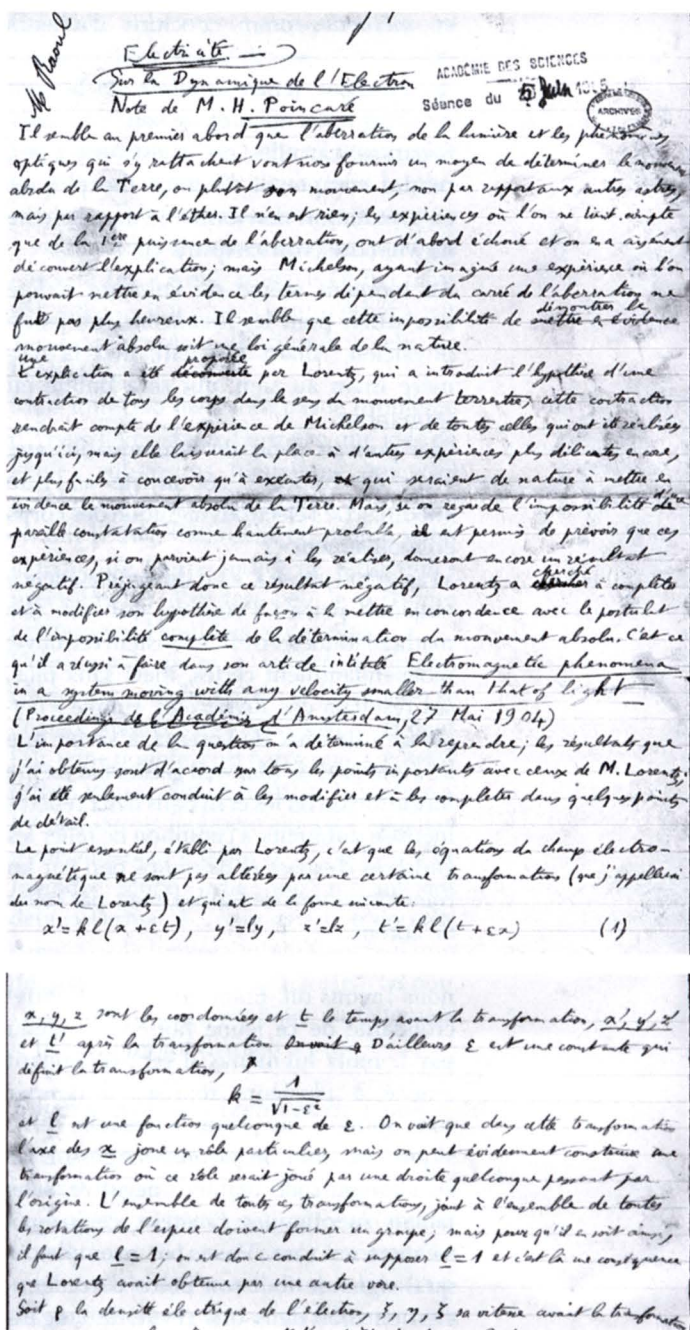 Mr Raoul
Electricité
ACADÉMIE DES SCIENCES
Sur la Dynamique de l'Electron
Séance du 5 Juin 1905
Note de M. H. Poincaré
ARCHIVES
Il semble au premier abord que l'aberration de la lumière et les phénomènes
optiques qui s'y rattachent vont nous fournir un moyen de déterminer le mouvement
absolu de la Terre, ou plutôt son mouvement, non par rapport aux autres astres,
mais par rapport à l'éther. Il n'en est rien; les expériences où l'on ne tient compte
que de la 1ère puissance de l'aberration, ont d'abord échoué et on en a aisément
découvert l'explication; mais Michelson, ayant imaginé une expérience où l'on
pouvait mettre en évidence les termes dépendant du carré de l'aberration, ne
fut pas plus heureux. Il semble que cette impossibilité de démontrer le
mouvement absolu soit une loi générale de la nature.
Une explication a été proposée par Lorentz, qui a introduit l'hypothèse d'une
contraction de tous les corps dans le sens du mouvement terrestre; cette contraction
rendrait compte de l'expérience de Michelson et de toutes celles qui ont été réalisées
jusqu'ici, mais elle laisserait la place à d'autres expériences plus délicates encore,
et plus faciles à concevoir qu'à exécuter, qui seraient de nature à mettre en
évidence le mouvement absolu de la Terre. Mais, si on regarde l'impossibilité d'une
pareille constatation comme hautement probable, il est permis de prévoir que ces
expériences, si on parvient jamais à les réaliser, donneront encore un résultat
négatif. Préjugeant donc ce résultat négatif, Lorentz a cherché à compléter
et à modifier son hypothèse de façon à la mettre en concordance avec le postulat
de l'impossibilité complète de la détermination du mouvement absolu. C'est ce
qu'il a réussi à faire dans son article intitulé Electromagnetic phenomena
in a system moving with any velocity smaller than that of light
(Proceedings de l'Académie d'Amsterdam, 27 Mai 1904)
L'importance de la question m'a déterminé à la reprendre; les résultats que
j'ai obtenus sont d'accord sur tous les points importants avec ceux de M. Lorentz;
j'ai été seulement conduit à les modifier et à les compléter dans quelques points
de détail.
Le point essentiel, établi par Lorentz, c'est que les équations du champ électro-
magnétique ne sont pas altérées par une certaine transformation (que j'appellerai
du nom de Lorentz) et qui est de la forme suivante:
x'= kl(x + εt), y'=ly, z'=lz, t'= kl(t + εx) (1)
x, y, z sont les coordonnées et t le temps avant la transformation, x', y', z'
et t' après la transformation. D'ailleurs ε est une constante qui
définit la transformation,
k = 1/√(1-ε²)
et l est une fonction quelconque de ε. On voit que dans cette transformation
l'axe des x joue un rôle particulier, mais on peut évidemment construire une
transformation où ce rôle serait joué par une droite quelconque passant par
l'origine. L'ensemble de toutes ces transformations, joint à l'ensemble de toutes
les rotations de l'espace doivent former un groupe; mais pour qu'il en soit ainsi,
il faut que l = 1; on est donc conduit à supposer l = 1 et c'est là une conséquence
que Lorentz avait obtenue par une autre voie.
Soit ρ la densité électrique de l'électron, ξ, η, ζ sa vitesse avant la transformation